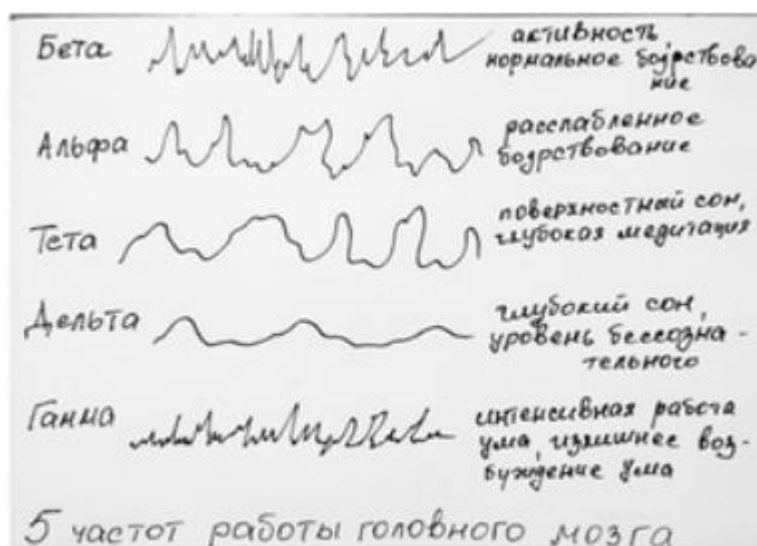 Бета
активность
нормальное бодрствова
ние
Альфа
расслабленное
бодрствование
Тета
поверхностный сон,
глубокая медитация
Дельта
глубокий сон,
уровень бессозна-
тельного
Гамма
интенсивная работа
ума, излишнее воз-
буждение ума
5 частот работы головного мозга